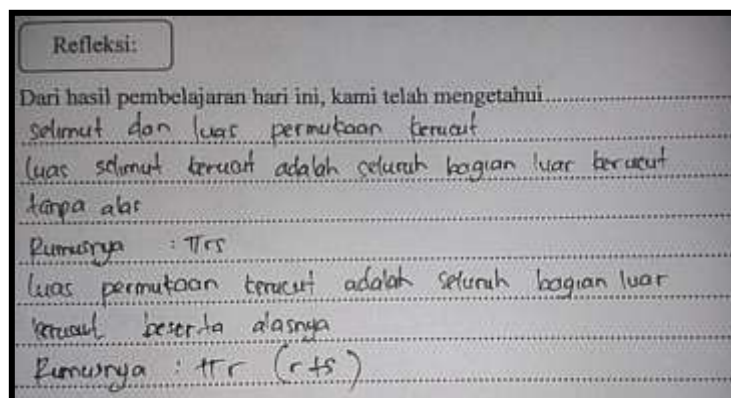 Refleksi:
Dari hasil pembelajaran hari ini, kami telah mengetahui..........
selimut dan luas permukaan kerucut
luas selimut kerucut adalah seluruh bagian luar kerucut
tanpa alas
Rumusnya : πrs
luas permukaan kerucut adalah seluruh bagian luar
kerucut beserta alasnya
Rumusnya : πr (r+s)